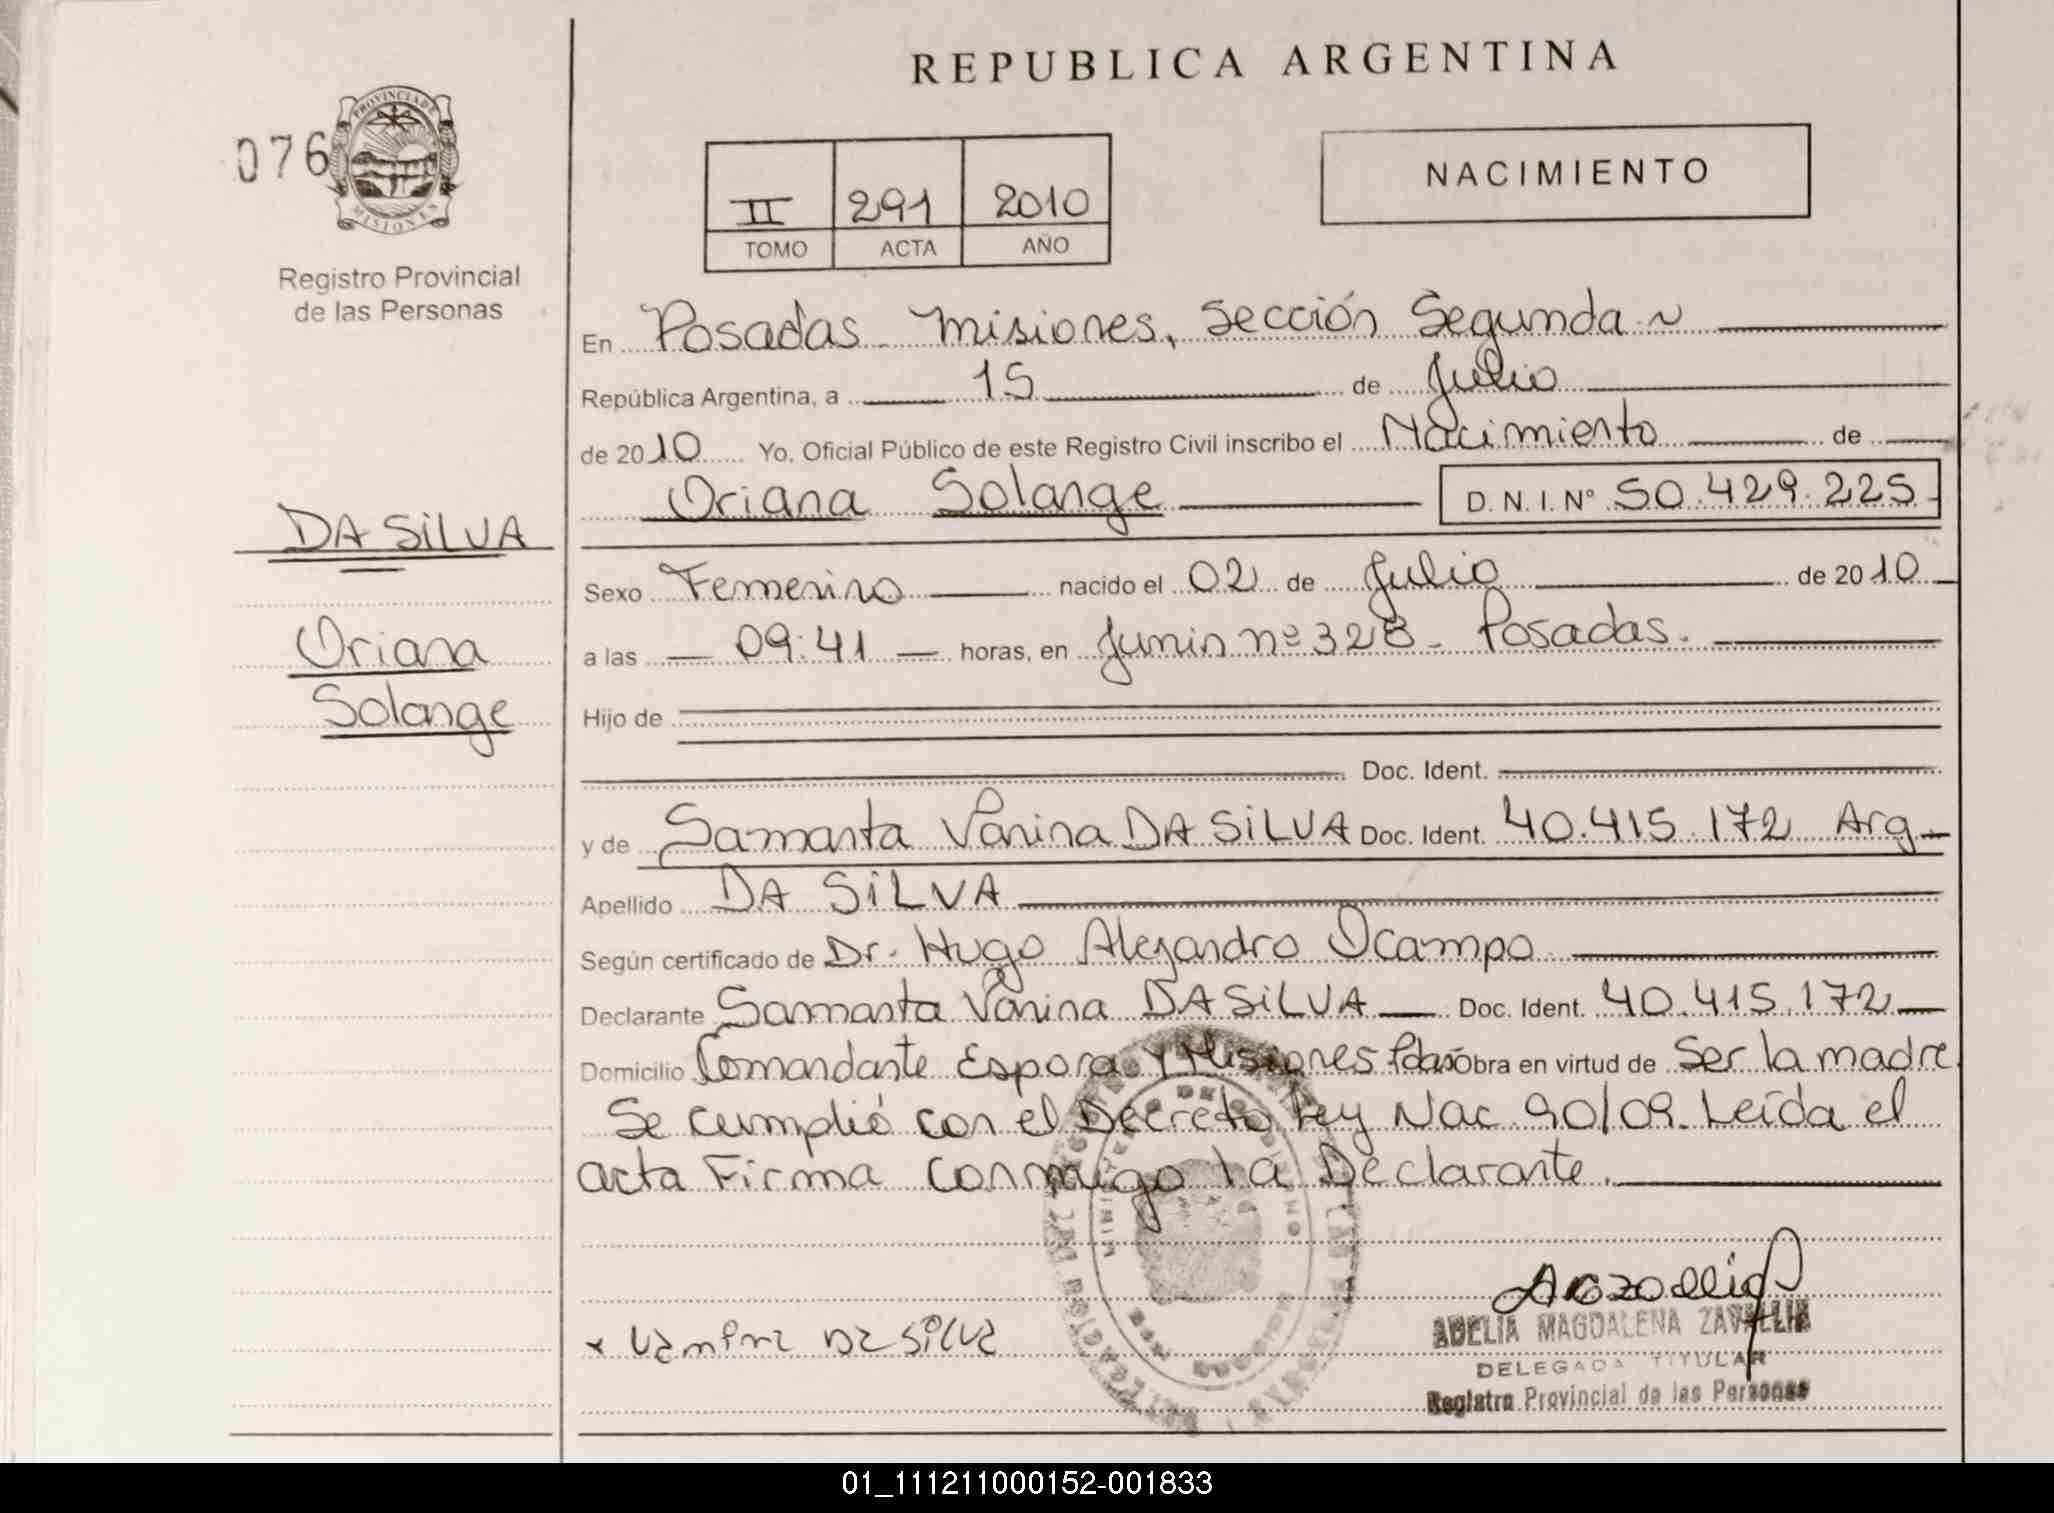 REPUBLICA ARGENTINA
076
PROVINCIA DE
MISIONES
Registro Provincial
de las Personas
II 291 2010
TOMO ACTA AÑO
NACIMIENTO
En Posadas Misiones, Sección Segunda
República Argentina, a 15 de Julio
de 2010 Yo, Oficial Público de este Registro Civil inscribo el Nacimiento de
Oriana Solange D.N.I. Nº 50.429.225
DA SiLVA
Oriana
Solange
Sexo Femenino nacido el 02 de Julio de 2010
a las 09:41 horas, en Junin nº 328 - Posadas.
Hijo de
Doc. Ident.
y de Samanta Vanina DA SiLVA Doc. Ident. 40.415.172 Arg
Apellido DA SiLVA
Según certificado de Dr. Hugo Alejandro Ocampo
Declarante Samanta Vanina DA SiLVA Doc. Ident. 40.415.172
Domicilio Comandante Espora y Misiones Obra en virtud de Ser la madre
Se cumplió con el Decreto Ley Nac 90/09. Leída el
acta Firma conmigo la Declarante.
x Vanina Da Silva
ADELIA MAGDALENA ZAVALLIA
DELEGADA TITULAR
Registro Provincial de las Personas
01_111211000152-001833